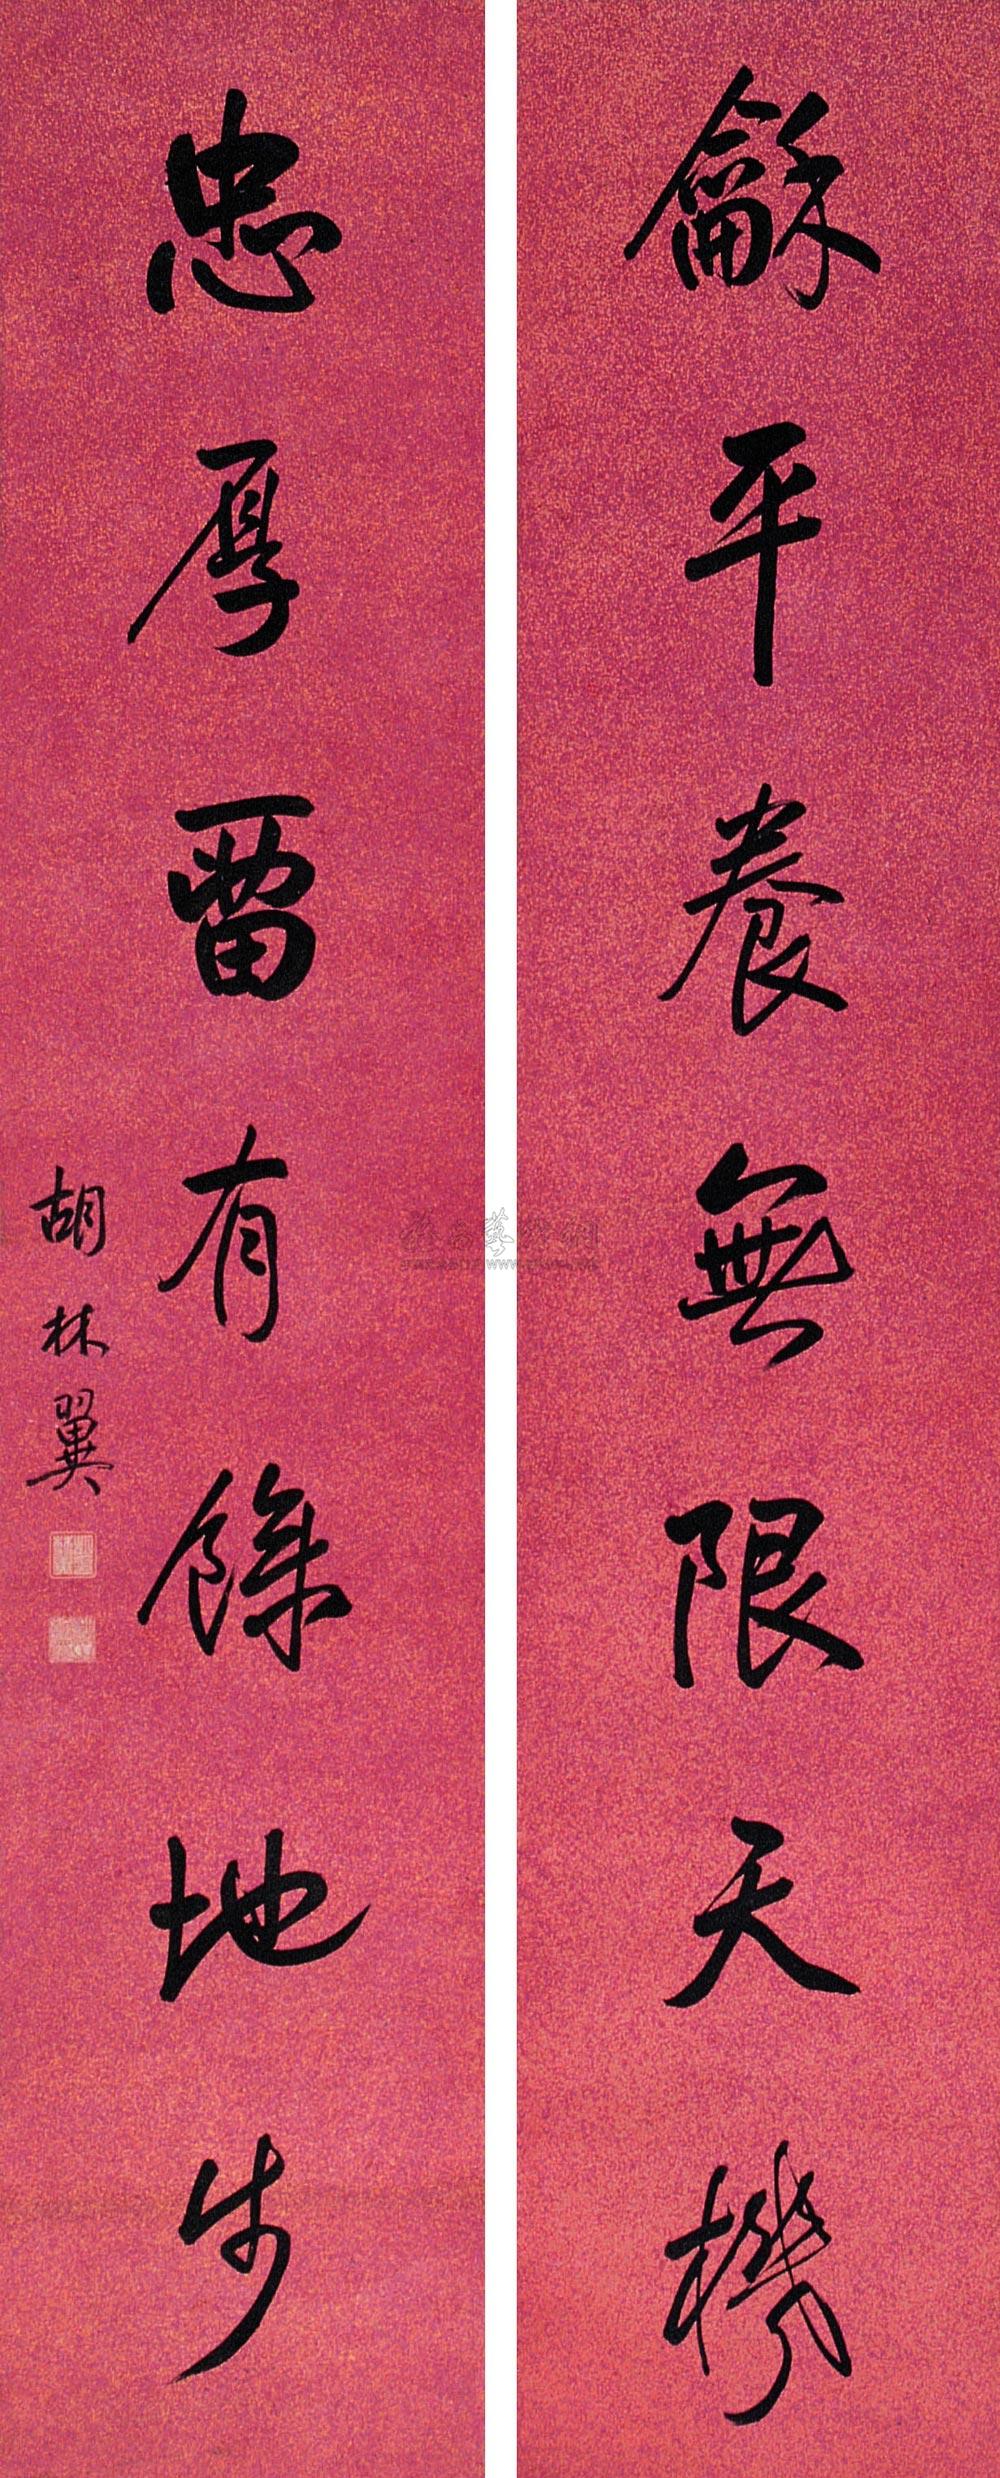 龢平養無限天機
忠厚畱有餘地步
胡林翼